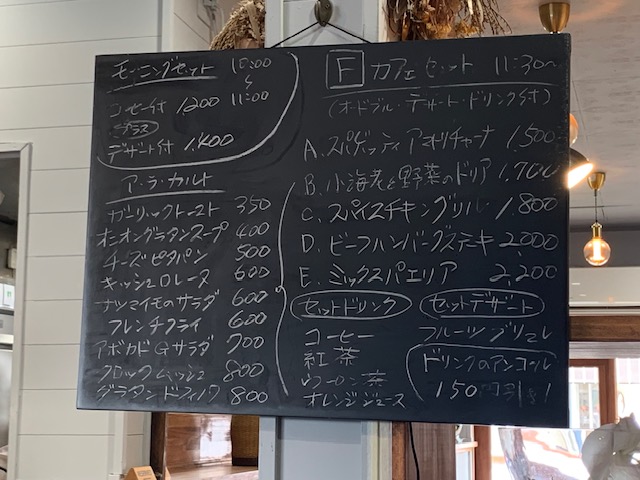 モーニングセット 10:00
〜
コーヒー付 1,200 11:00
プラス
デザート付 1,400
ア・ラ・カルト
ガーリックトースト 350
オニオングラタンスープ 400
チーズピタパン 500
キッシュロレーヌ 600
サツマイモのサラダ 600
フレンチフライ 600
アボカドGサラダ 700
クロックムッシュ 800
グラタンドフィノワ 800
F カフェセット 11:30〜
(オードブル・デザート・ドリンク付)
A. スパゲッティアマトリチャーナ 1,500
B. 小海老と野菜のドリア 1,700
C. スパイスチキングリル 1,800
D. ビーフハンバーグステーキ 2,000
E. ミックスパエリア 2,200
セットドリンク セットデザート
コーヒー フルーツブリュレ
紅茶
ウーロン茶
オレンジジュース
ドリンクのアンコール
150円引き!